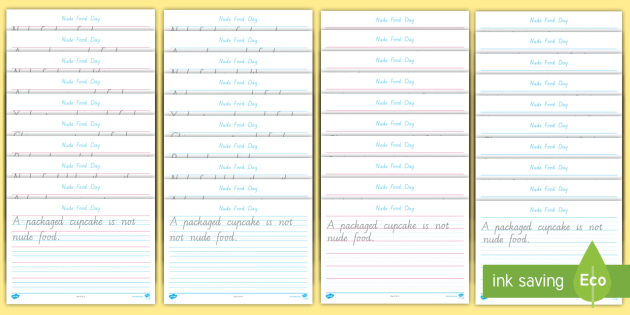 Nude Food Day
Nude Food Day
Nude Food Day
Nude Food Day
Nude Food Day
Nude Food Day
Nude Food Day
Nude Food Day
Nude Food Day
Nude Food Day
A packaged cupcake is not
nude food.
Nude Food Day
Nude Food Day
Nude Food Day
Nude Food Day
Nude Food Day
Nude Food Day
Nude Food Day
Nude Food Day
Nude Food Day
Nude Food Day
A packaged cupcake is not
not nude food.
Nude Food Day
Nude Food Day
Nude Food Day
Nude Food Day
Nude Food Day
Nude Food Day
Nude Food Day
Nude Food Day
Nude Food Day
Nude Food Day
A packaged cupcake is not
nude food.
Nude Food Day
Nude Food Day
Nude Food Day
Nude Food Day
Nude Food Day
Nude Food Day
Nude Food Day
Nude Food Day
Nude Food Day
Nude Food Day
A packaged cupcake is not
nude food.
ink saving Eco